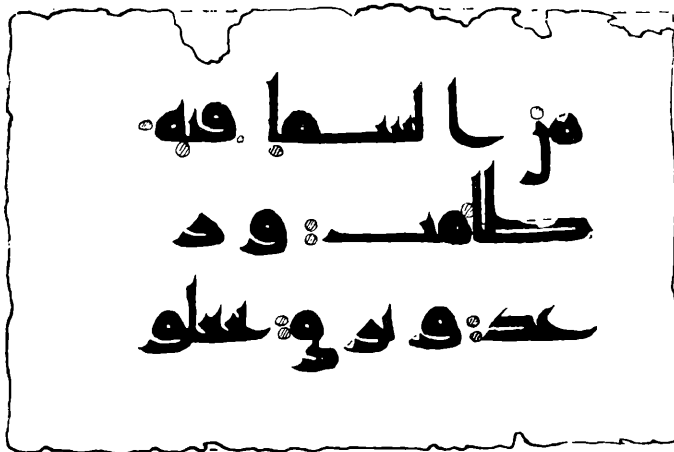 من السما فيه
ظلمت و ر
عد و بر ق يجعلو